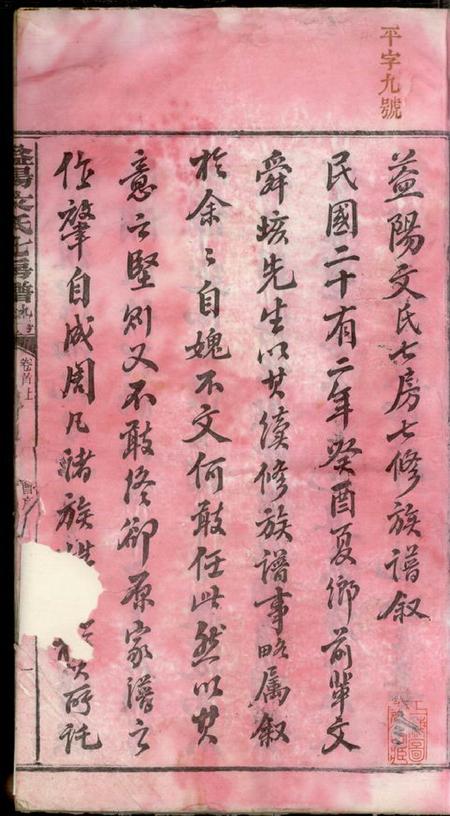 平字九號
益陽文氏七房七修族譜叙
民國二十有二年癸酉夏鄉前輩文
舜垓先生以其續修族譜事略属叙
於余々自媿不文何敢任此然以其
意之堅則又不敢終卻原家譜之
作肇自成周凡諸族姓 其所託
益陽文氏七房譜
卷首上